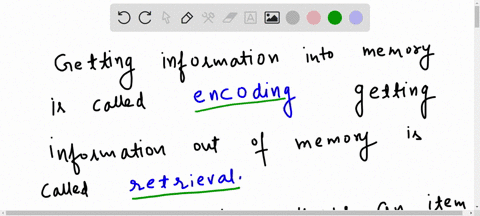 Getting information into memory
is called encoding getting
information out of memory is
called retrieval.
an item